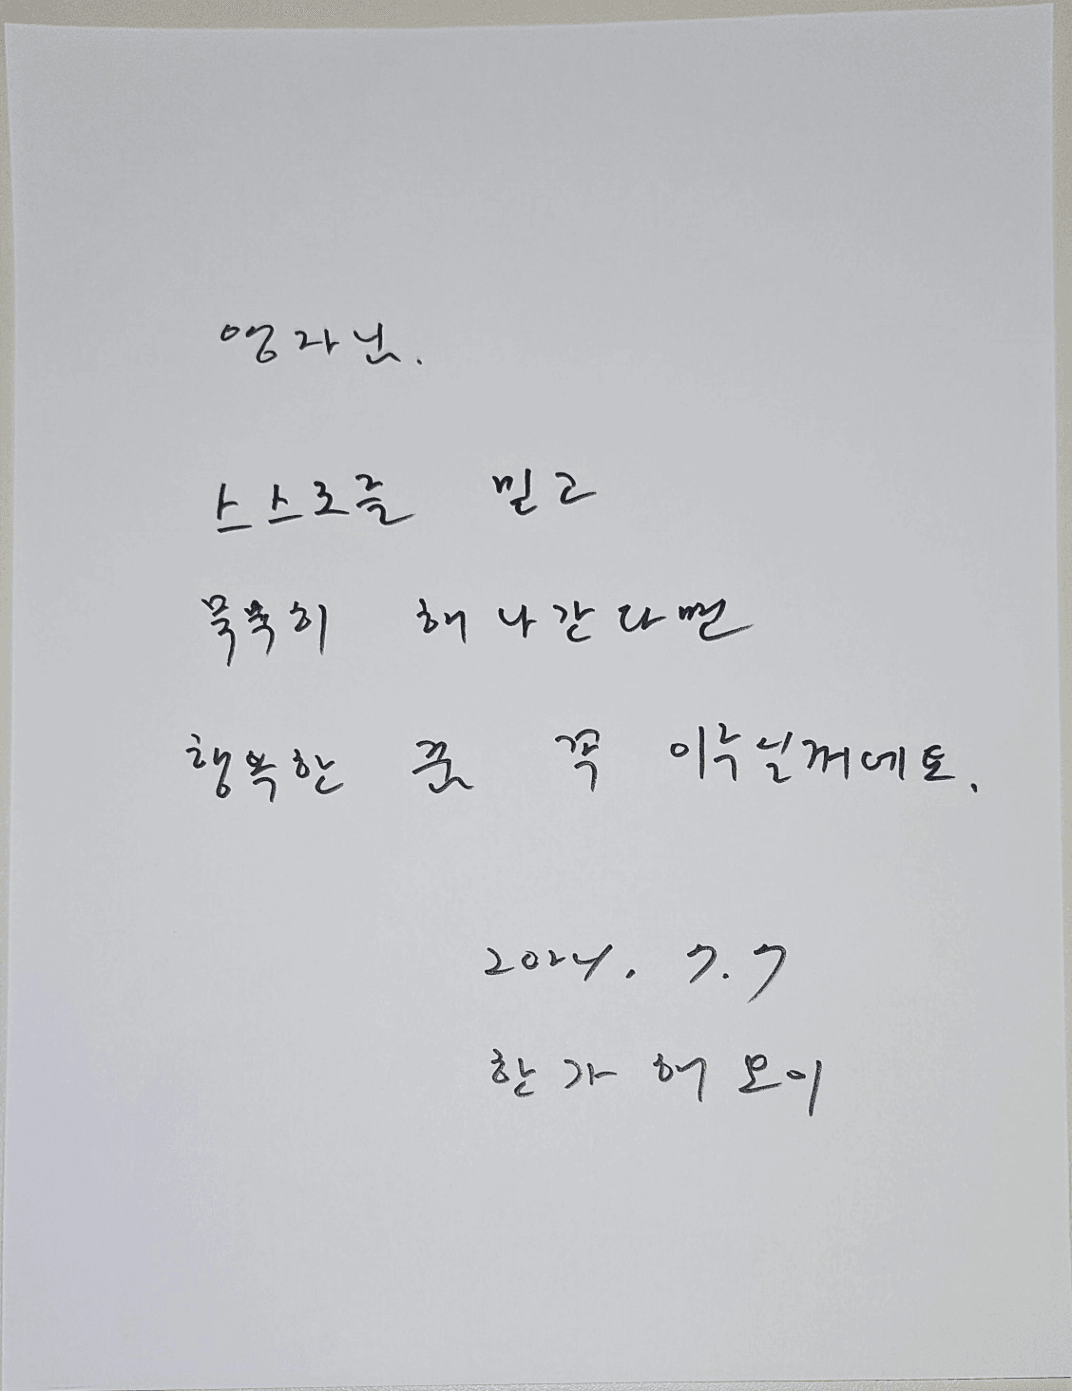 영자님.
스스로를 믿고
묵묵히 해나간다면
행복한 꿈 꼭 이루실꺼예요.
2024. 7. 7